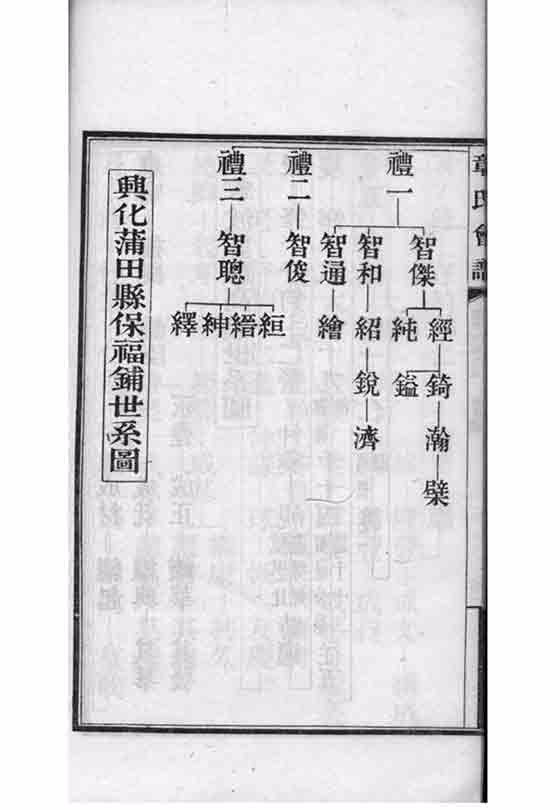 章氏會譜
禮一
智傑
經
錡
瀚
檗
鎰
純
智和
紹
銳
濟
智通
繪
禮二
智俊
禮三
智聰
絙
縉
紳
繹
興化蒲田縣保福鋪世系圖